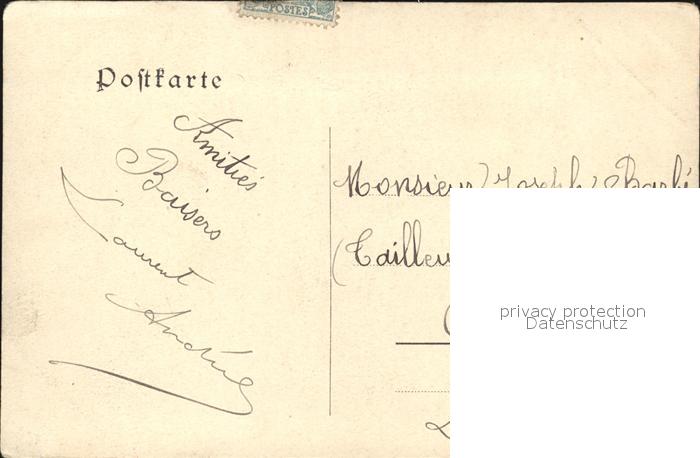 POSTES
Postkarte
Amitiés
Baisers
Laurent
Andrée
Monsieur Joseph
(Tailleur
privacy protection
Datenschutz